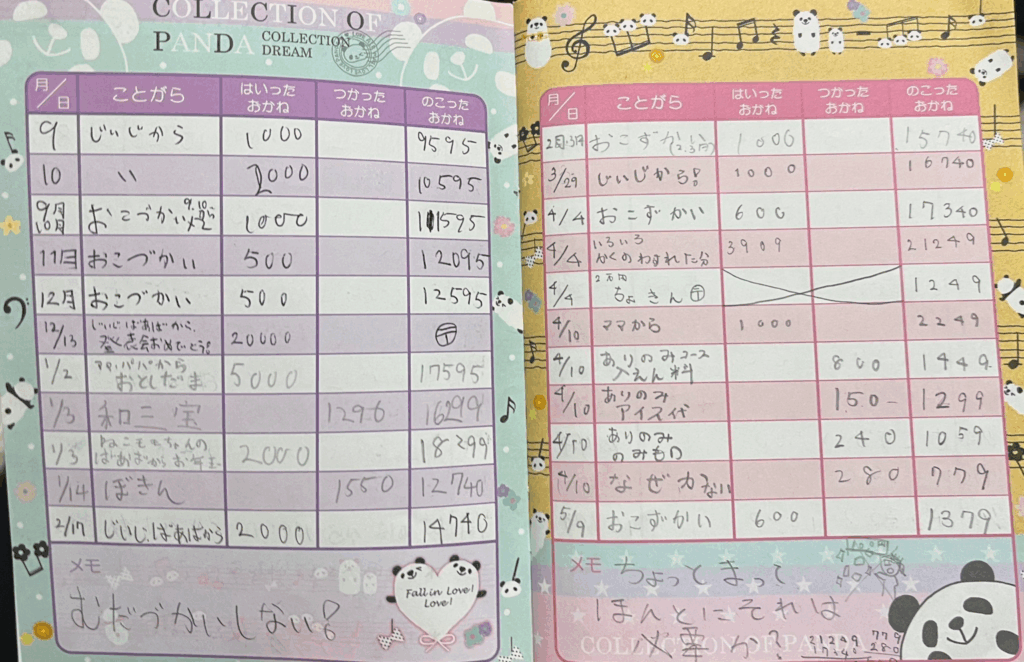 COLLECTION OF
PANDA COLLECTION
DREAM
月/日 ことがら はいったおかね つかったおかね のこったおかね
9 じいじから 1000 9595
10 〃 2000 10595
9月10月 おこづかい 9.10月 1000 11595
11月 おこづかい 500 12095
12月 おこづかい 500 12595
12/13 じいじばあばから、発表会おめでとう! 20000 〒
1/2 ママ・パパからおとしだま 5000 17595
1/3 和三宝 1296 16299
1/3 ちゃんのばあばからお年玉 2000 18299
1/14 ぼきん 1550 12740
2/17 じいじ、ばあばから 2000 14740
メモ
むだづかいしない!
Fall in Love!
Love!
月/日 ことがら はいったおかね つかったおかね のこったおかね
2月・3月 おこずかい(2.3月) 1000 15740
3/29 じいじから! 1000 16740
4/4 おこずかい 600 17340
4/4 いろいろかくのわすれた分 3909 21249
4/4 2万円ちょきん〒 1249
4/10 ママから 1000 2249
4/10 ありのみコース入えん料 800 1449
4/10 ありのみアイス代 150- 1299
4/10 ありのみのみもの 240 1059
4/10 なぜかない 280 779
5/9 おこずかい 600 1379
メモ ちょっとまって
ほんとにそれは
必要っ?
COLLECTION OF PANDA
779
280